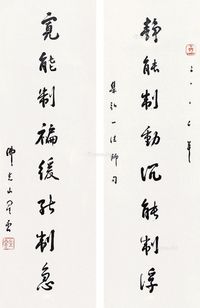 二〇〇七年
靜能制動沉能制浮
集弘一法師句
寬能制褊緩能制急
佛光山星雲